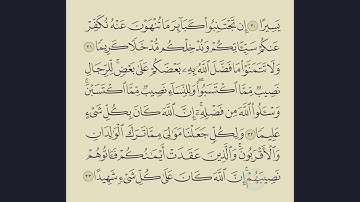 يَسِيرًا ٣٠ إِن تَجْتَنِبُوا۟ كَبَآئِرَ مَا تُنْهَوْنَ عَنْهُ نُكَفِّرْ
عَنكُمْ سَيِّـَٔاتِكُمْ وَنُدْخِلْكُم مُّدْخَلًا كَرِيمًا ٣١
وَلَا تَتَمَنَّوْا۟ مَا فَضَّلَ ٱللَّهُ بِهِۦ بَعْضَكُمْ عَلَىٰ بَعْضٍ ۚ لِّلرِّجَالِ
نَصِيبٌ مِّمَّا ٱكْتَسَبُوا۟ ۖ وَلِلنِّسَآءِ نَصِيبٌ مِّمَّا ٱكْتَسَبْنَ ۚ
وَسْـَٔلُوا۟ ٱللَّهَ مِن فَضْلِهِۦٓ ۗ إِنَّ ٱللَّهَ كَانَ بِكُلِّ شَىْءٍ
عَلِيمًا ٣٢ وَلِكُلٍّ جَعَلْنَا مَوَٰلِىَ مِمَّا تَرَكَ ٱلْوَٰلِدَانِ
وَٱلْأَقْرَبُونَ ۚ وَٱلَّذِينَ عَقَدَتْ أَيْمَـٰنُكُمْ فَـَٔاتُوهُمْ
نَصِيبَهُمْ ۚ إِنَّ ٱللَّهَ كَانَ عَلَىٰ كُلِّ شَىْءٍ شَهِيدًا ٣٣